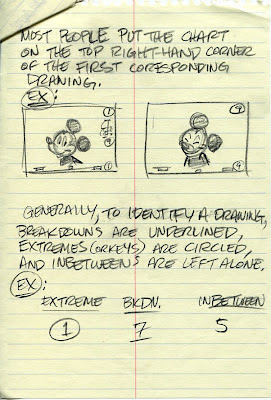 MOST PEOPLE PUT THE CHART
ON THE TOP RIGHT-HAND CORNER
OF THE FIRST CORESPONDING
DRAWING.
EX:
1
9
1
9
GENERALLY, TO IDENTIFY A DRAWING,
BREAKDOWNS ARE UNDERLINED,
EXTREMES (OR KEYS) ARE CIRCLED,
AND INBETWEENS ARE LEFT ALONE.
EX:
EXTREME BKDN. INBETWEEN
1 7 5